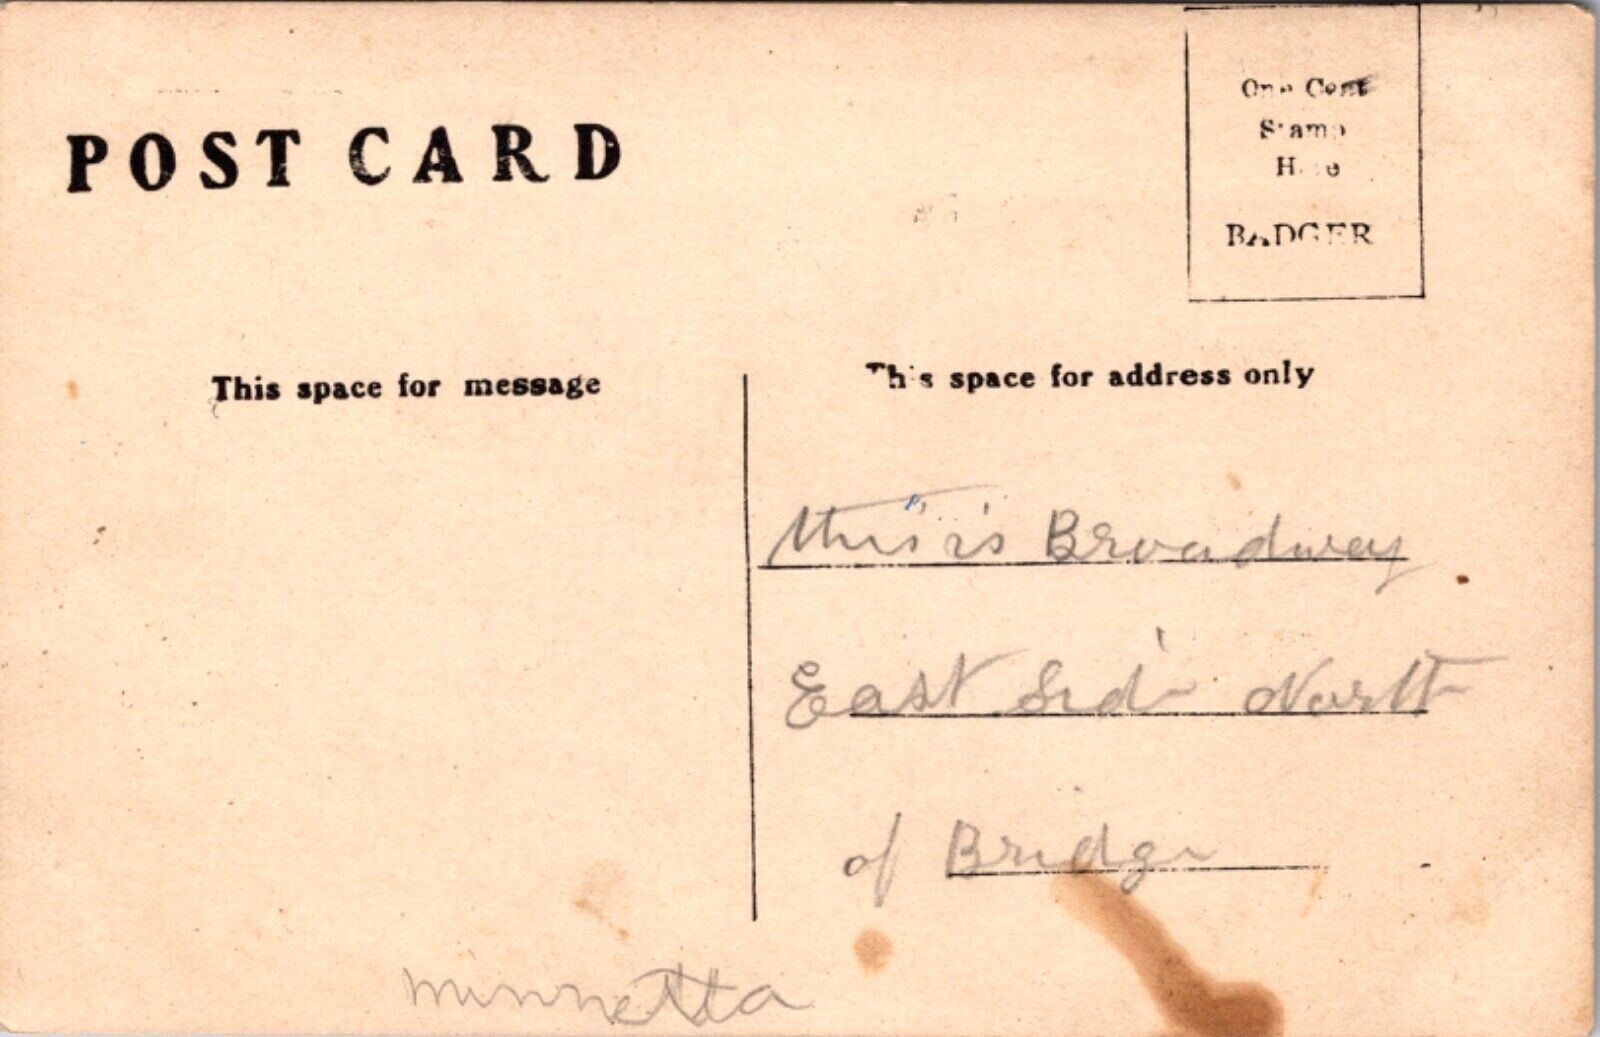 POST CARD
One Cent
Stamp
Here
BADGER
This space for message
This space for address only
this is Broadway
East Side North
of Bridge
Minnetta